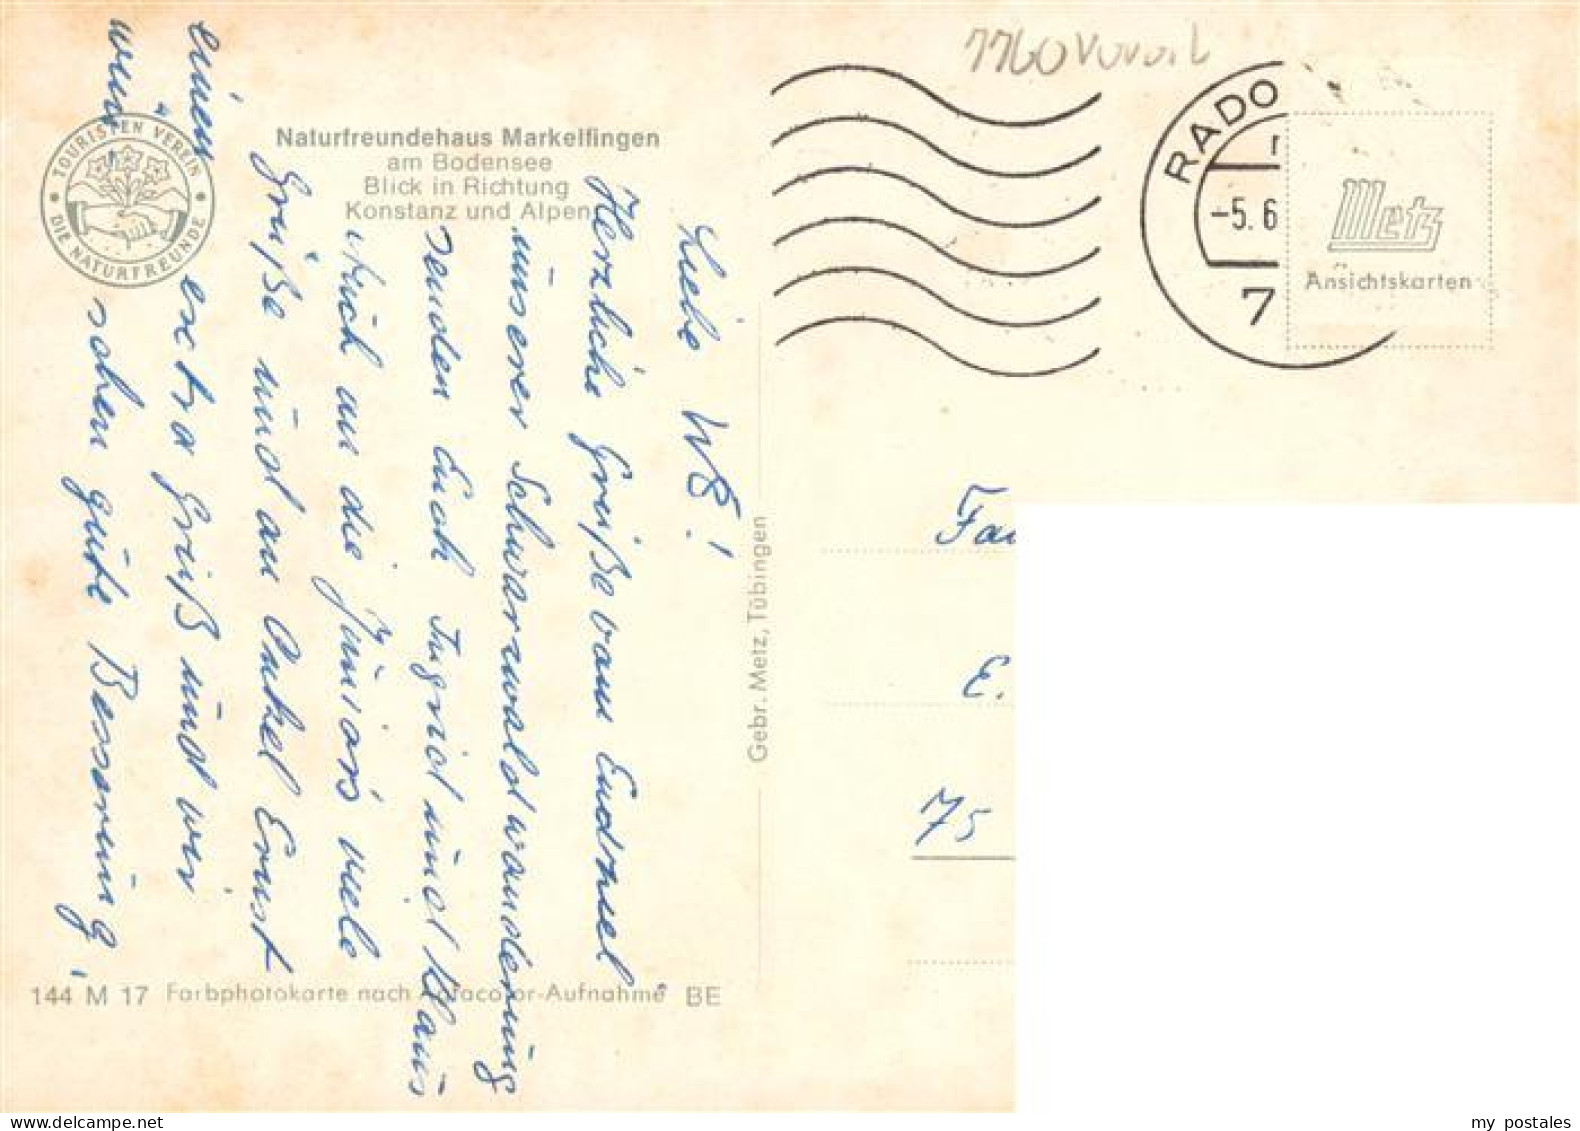 Naturfreundehaus Markelfingen
am Bodensee
Blick in Richtung
Konstanz und Alpen
TOURISTEN VEREIN
DIE NATURFREUNDE
Liebe WB!
Herzliche Grüße vom Endziel
unserer Schwarzwaldwanderung
senden Euch Ingrid und Klaus
Auch an die Juniors viele
Grüße und an Onkel Ernst
einen extra Gruß und wir
wünschen gute Besserung!
144 M 17 Farbphotokarte nach Agfacolor-Aufnahme BE
Gebr. Metz, Tübingen
RADO
-5. 6
7
Metz
Ansichtskarten
Fa
E.
75
my postales
delcampe.net